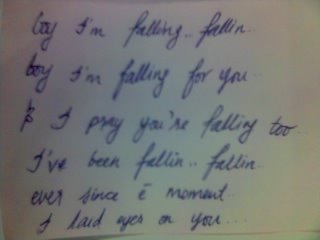 boy I'm falling.. fallin..
boy I'm falling for you..
I pray you're falling too..
I've been fallin.. fallin..
ever since ē moment..
I laid eyes on you...